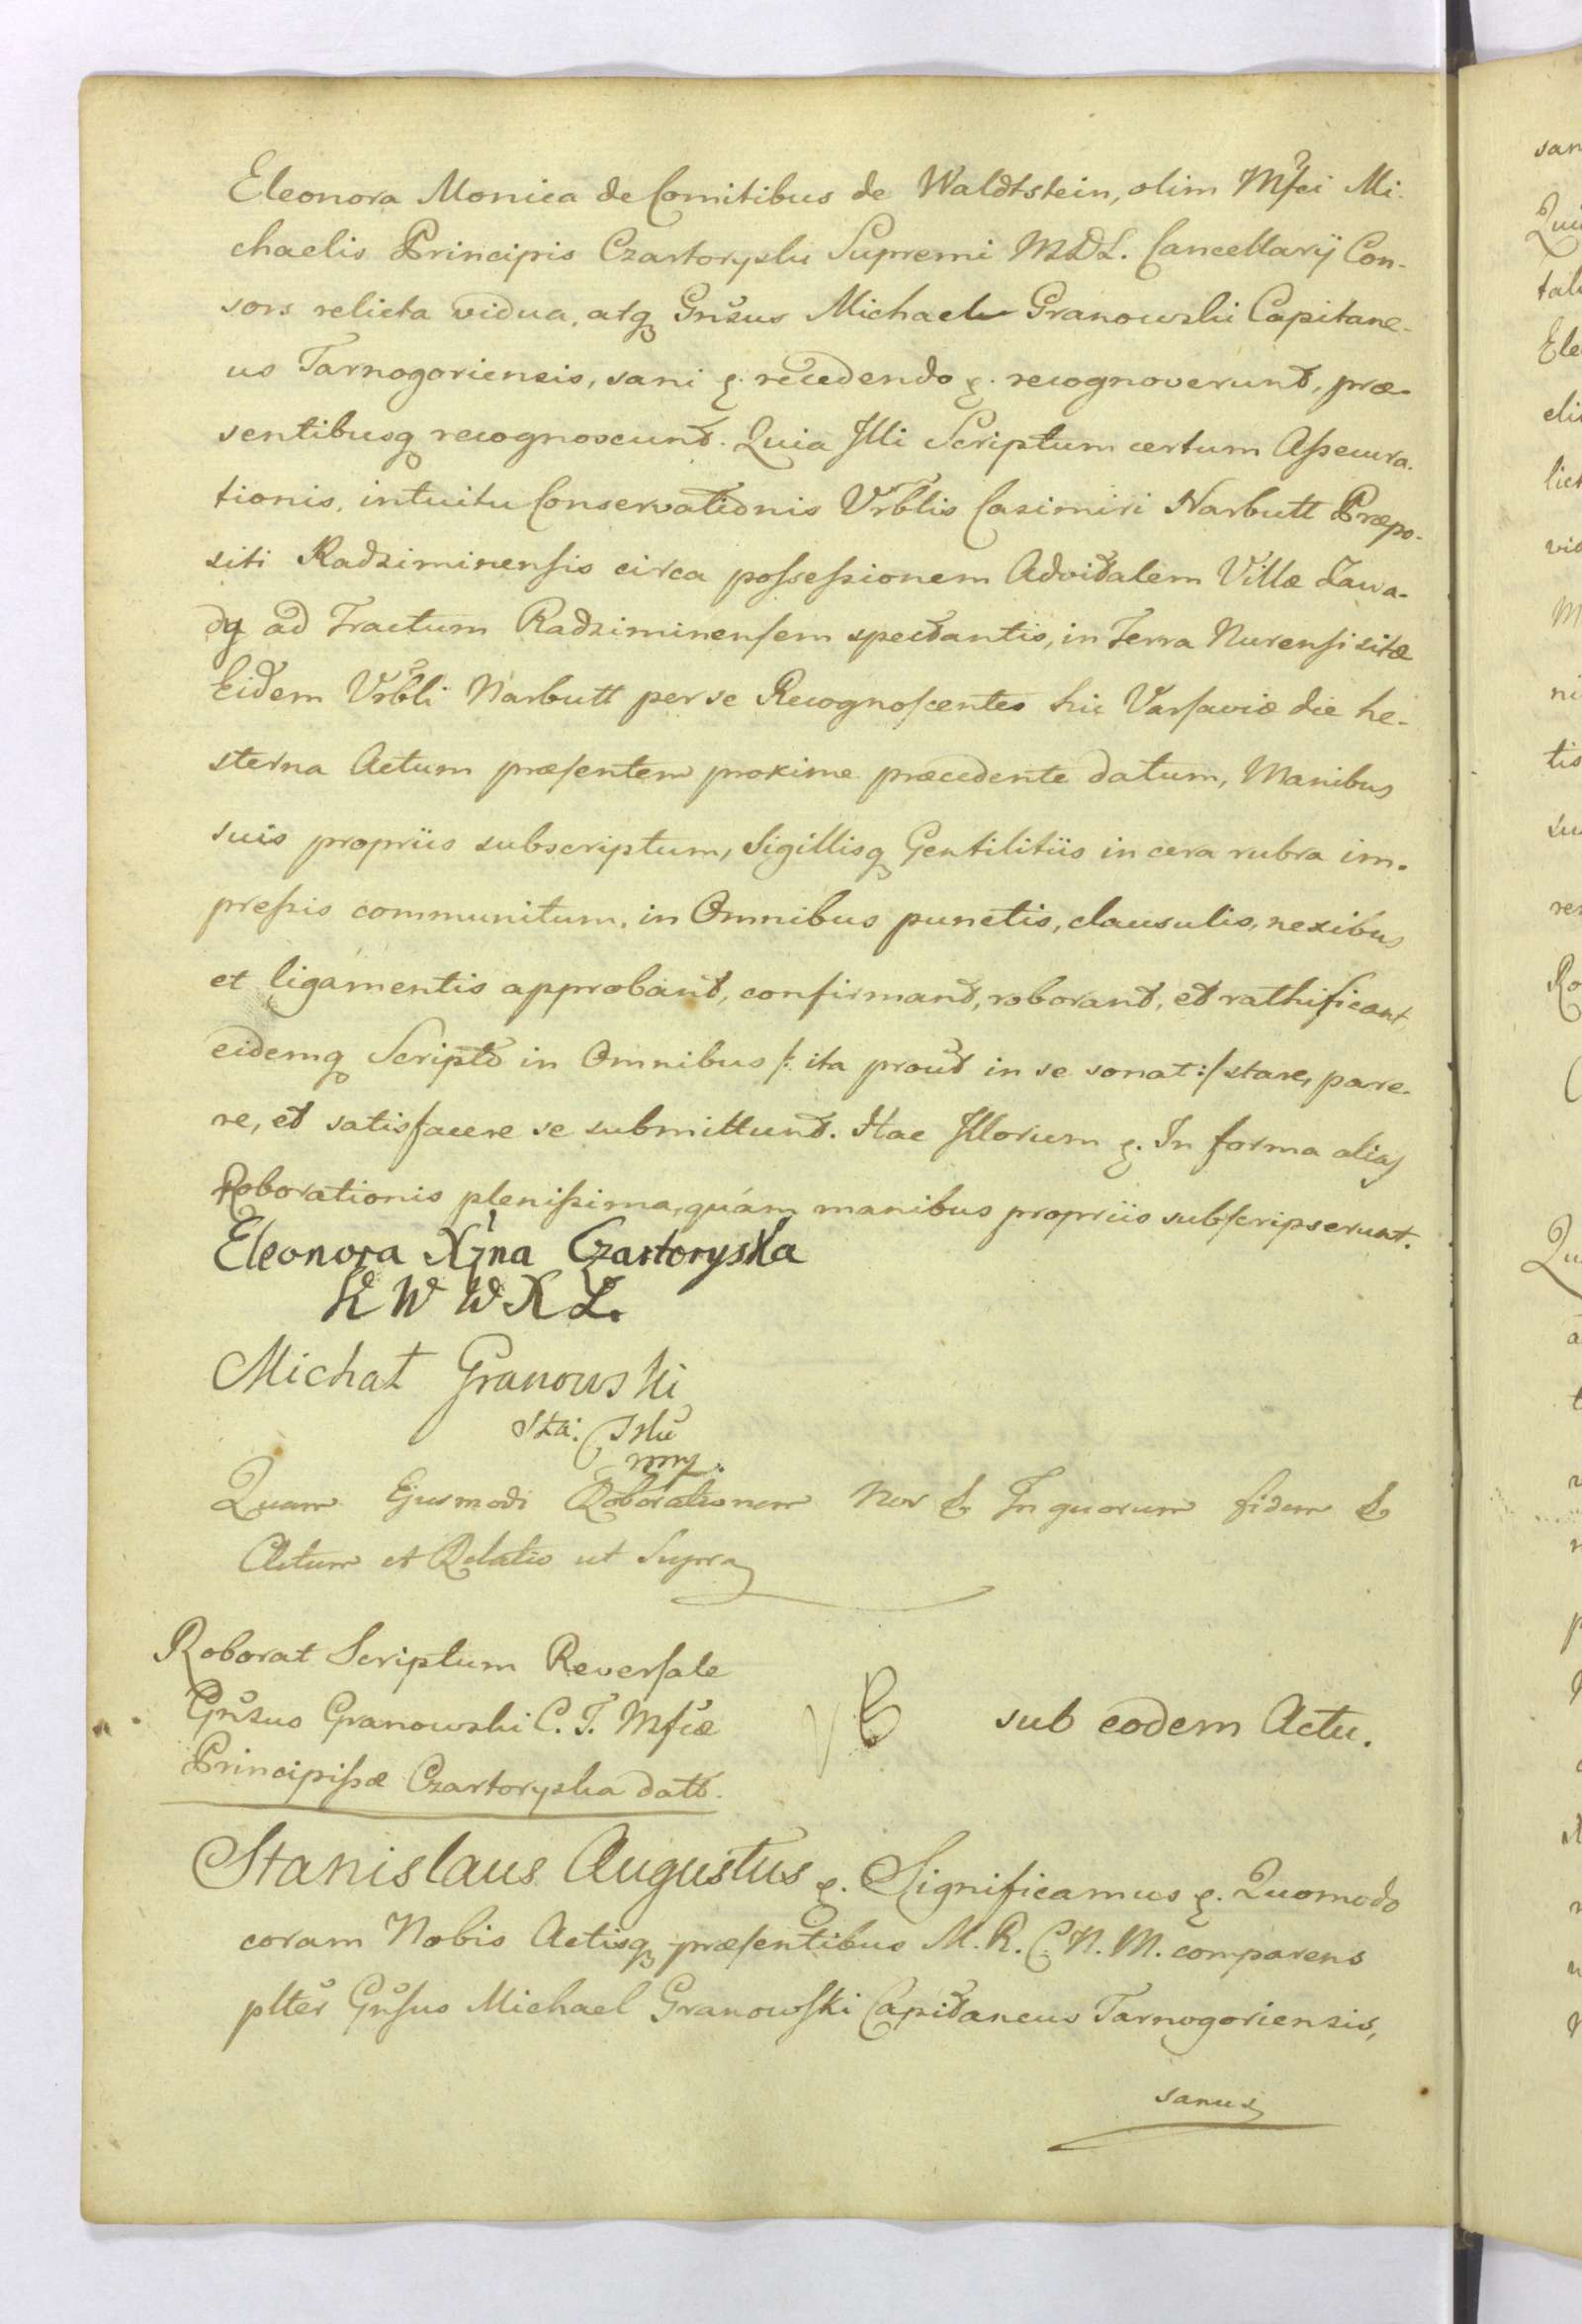 Eleonora Monica de Comitibus de Waldtstein, olim Mfci Mi-
chaelis Principis Czartoryski Supremi M.D.L. Cancellarij Con-
sors relicta vidua, atq Gnsus Michael Granowski Capitane-
us Tarnogoriensis, sani &. recedendo &. recognoverunt, præ-
sentibusq recognoscunt. Quia Illi Scriptum certum Assecura-
tionis, intuitu Conservationis Vrblis Casimiri Narbutt Præpo-
siti Radziminensis circa possessionem Advitalem Villæ Zawa-
dy ad Tractum Radziminensem spectantis, in Terra Nurensi sitæ
Eidem Vrbli Narbutt per se Recognoscentes hic Varsaviæ die he-
sterna Actum præsentem proxime præcedente datum, Manibus
suis propriis subscriptum, Sigillisq Gentilitiis in cera rubra im-
pressis communitum, in Omnibus punctis, clausulis, nexibus
et ligamentis approbant, confirmant, roborant, et rathificant,
eidemq Scripto in Omnibus /: ita prout in se sonat :/ stare, pare-
re, et satisfacere se submittunt. Hac Illorum &. In forma alias
Roborationis plenissima, quám manibus propriis subscripserunt.
Eleonora Xżna Czartoryska
K W W X L.
Michał Granowski
Sta:
mp.
Quam Ejusmodi Roborationem Nos & In quorum fidem &
Actum et Relatio ut Supra
Roborat Scriptum Reversale
Gnsus Granowski C. T. Mfcæ
Principissæ Czartoryska datt.
sub eodem Actu.
Stanislaus Augustus &. Significamus &. Quomodo
coram Nobis Actisq præsentibus M. R. C. N. M. comparens
plter Gnsus Michael Granowski Capitaneus Tarnogoriensis,
sanus